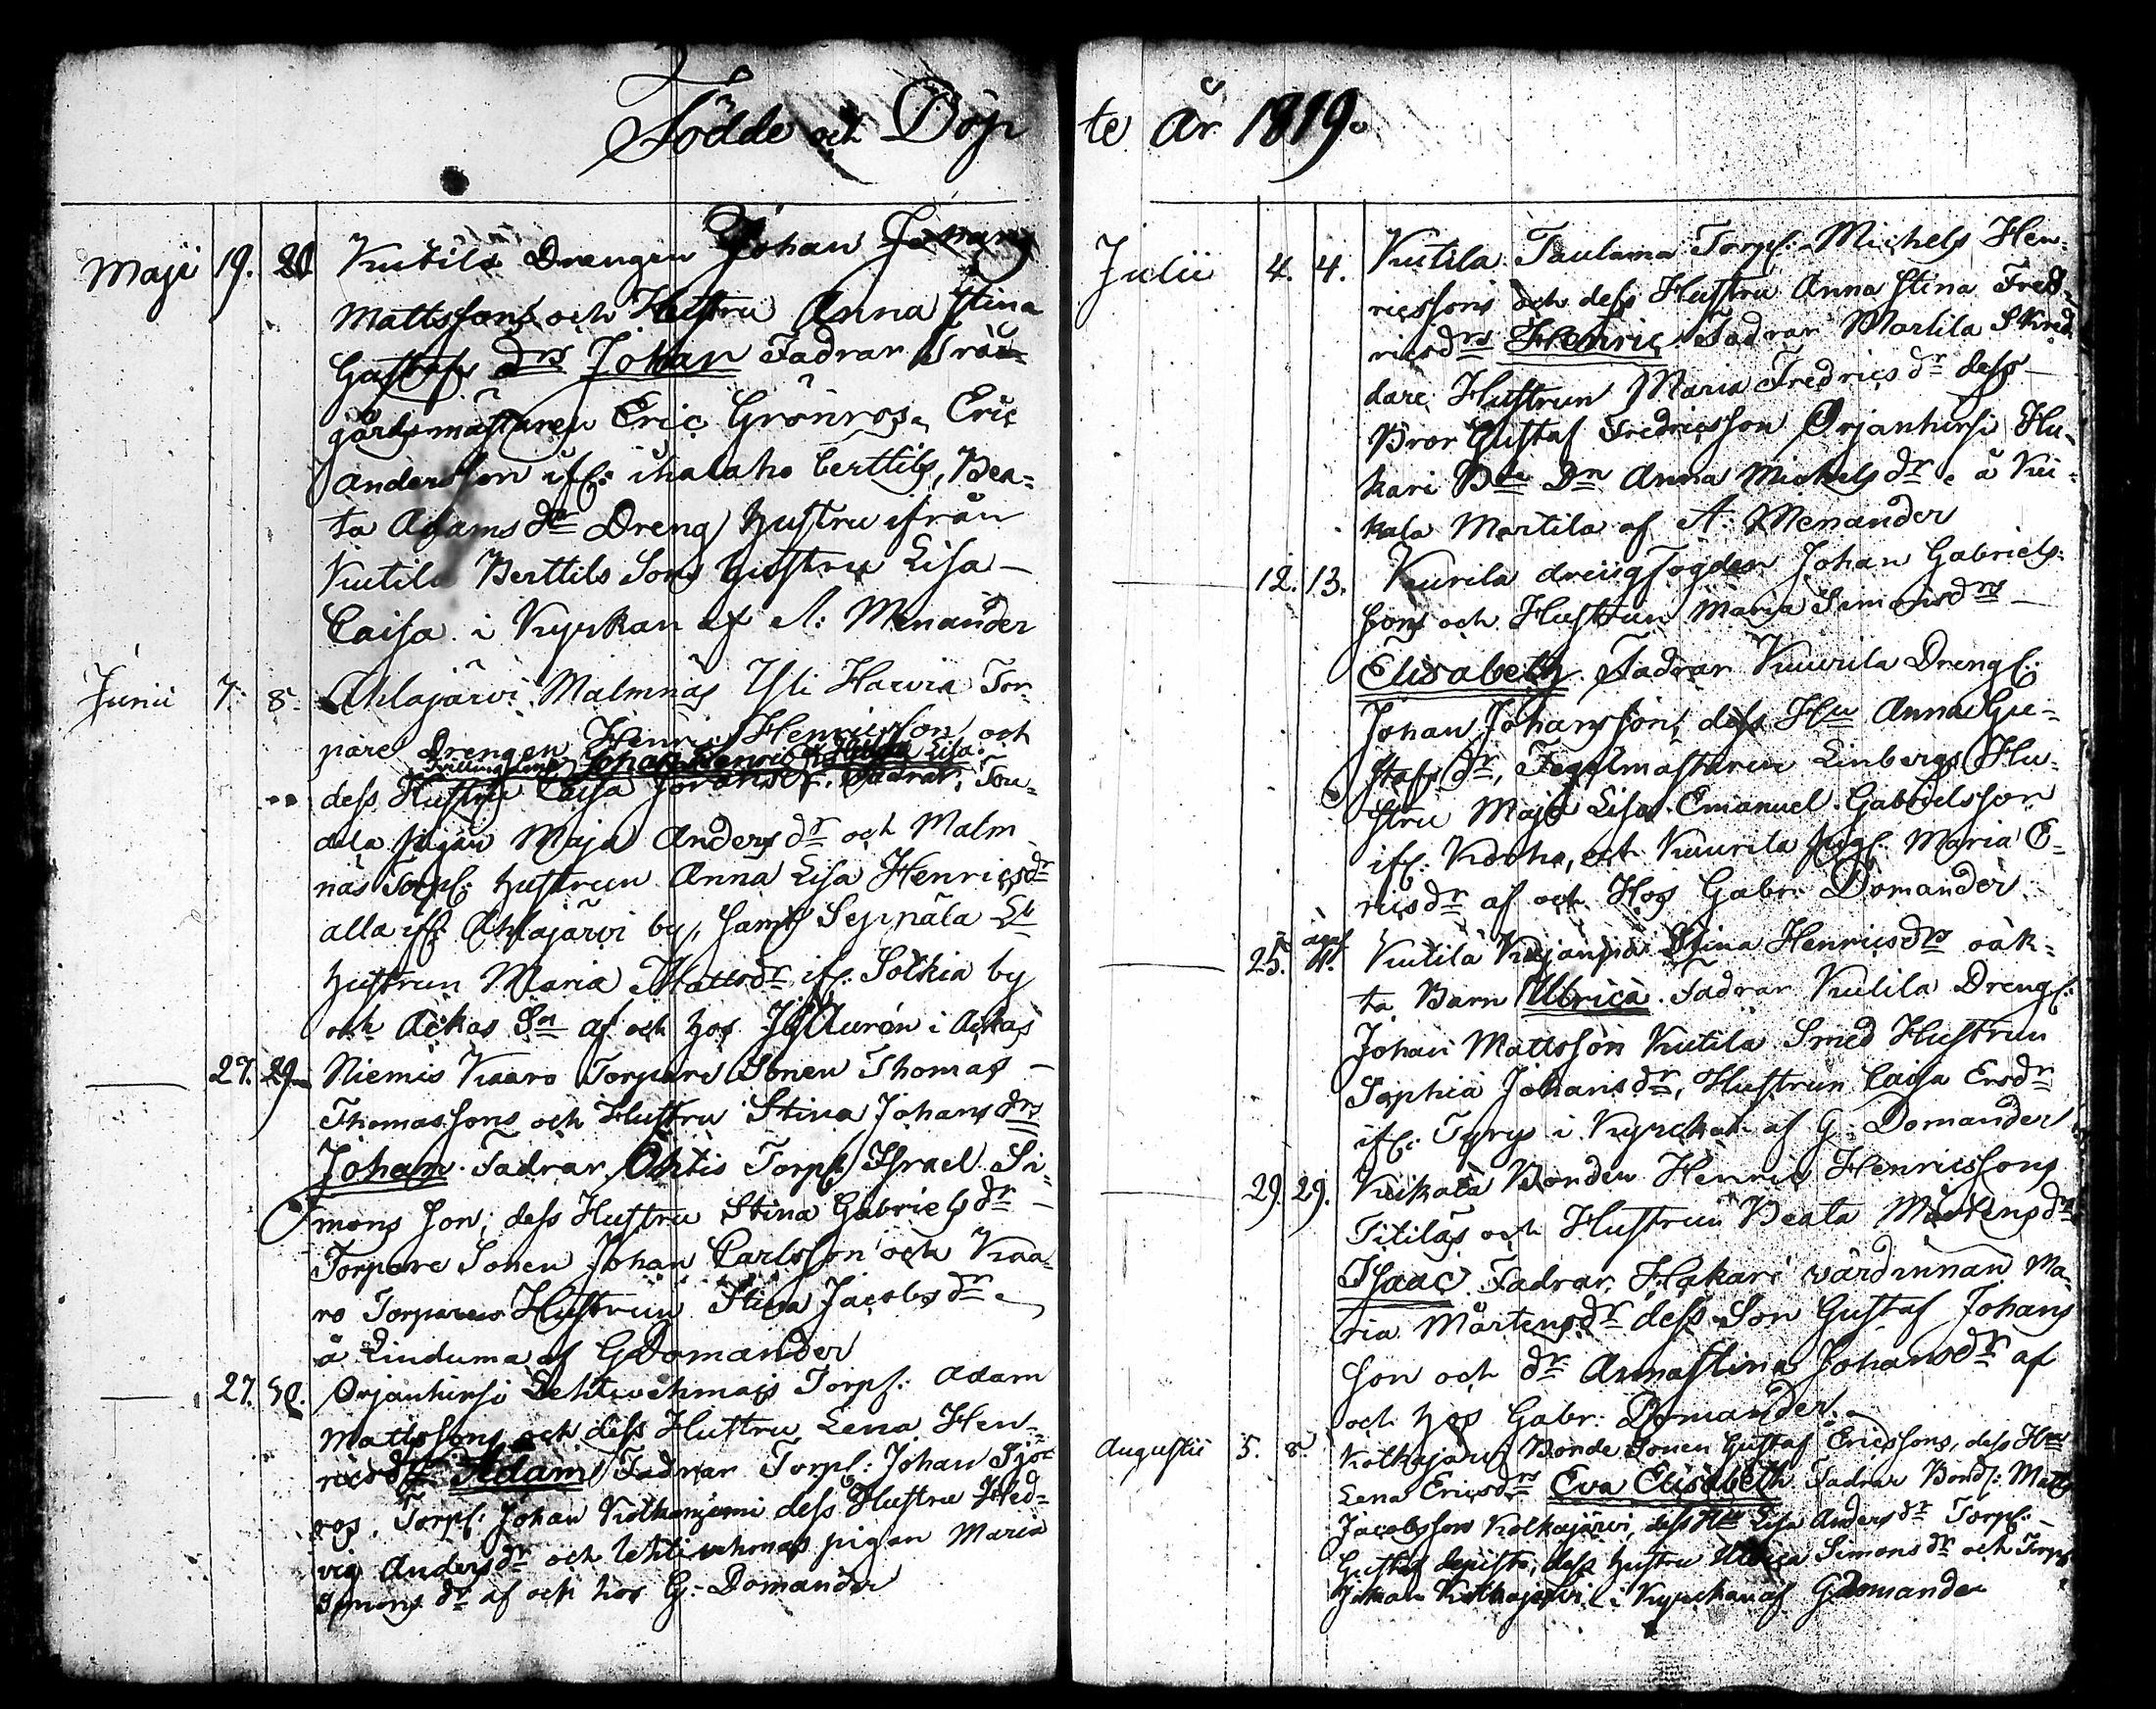 Födde och Döp
te År 1819.
Maji 19. 20 Kutila Drengen Johan
Mattssons och Hustru Anna Stina
Gustafs drs Johan Fadrar Trä
gårdsmästaren Eric Grönros, Eric
Andersson ifr: ihalaho Berttils, Bea-
ta Adams dr Dreng Hustru ifrån
Kutila Berttils Sons Hustru Lisa
Caisa i Kyrkan af A: Menander
Junii 7. 8. Ahlajärvi Malmnäs Yli Harvia Tor-
pare Drengen Henric Henricsson och
Tvillingarne Johan Henric & Lisa.
dess Hustru Caisa Johansdr. Fadrar, Tou-
ala pigan Maja Anders dr och Malm
näs Torp: Hustrun Anna Lisa Henricsdr
alla ifr: Ahlajärvi by, samt Sepnäla
Hustrun Maria Mattsdr ifr: Sotkia by
och Ackas Sn af och hos Auren i Ackas
27. 29 Niemis Kaaro Torpare Sonen Thomas
Thomassons och Hustru Stina Johans drs
Johan Fadrar Ohtis Torp: Israel Si-
mons Son, dess Hustru Stina Gabriels dr
Torpare Sonen Johan Carlsson och Kaa-
ro Torparens Hustrun Stina Jacobs dr
å Linduma af G Domander
27. Orjanhirsi Torp: Adam
Mattssons och dess Hustru Lena Hen-
rics drs Adam Fadrar Torp: Johan Sjö
ros, Torp: Johan Kolkanjemi dess Hustru Hed-
vig Anders dr och pigan Maria
Simons dr af och hos G: Domander
Julii 4. 4. Kutila Taulama Torp: Michels Hen-
ricssons och dess Hustru Anna Stina Fred-
ricsdrs Henric Fadrar Martila Skred-
dare Hustrun Maria Fredrics dr dess
Bror Gustaf Fredricsson Orjanhirsi Hu-
kari Bde Dr Anna Michels dr. å Kui-
kala Martila af A: Menander
12. 13. Kuurila drengfogden Johan Gabriels-
sons och Hustrun Maria Simonsdrs
Elisabeth. Fadrar Kuurila Dreng:
Johan Johansson, dess Hu Anna Gu-
stafs dr, Tegelmästaren Linbergs Hu-
stru Maja Lisa. Emanuel Gabrielsson
ifr: och Kuurila pig: Maria E-
ricsdr af och Hos Gabr: Domander
25. Kutila Stina Henricsdrs oäk-
ta Barn Ulrica. Fadrar Kutila Dreng:
Johan Mattsson Kutila Smed Hustrun
Sophia Johans dr, Hustrun Caisa Ersdr
ifr: Tyrys i Kyrckan af G: Domander
29. 29. Kuikala Bonden Henric Henricssons
Titiläs och Hustrun Beata Mårtens drs
Isaac. Fadrar, Hakari värdinnan Ma-
ria Mårtens dr dess Son Gustaf Johans
son och dr Anna Stina Johansdr af
och hos Gabr: Domander.
Augusti 5. 8. Kolkajärvi Bonde Sonen Gustaf Ericssons, dess Hus
Lena Ericsdrs Eva Elisabeth Fadrar Bond: Matts
Jacobsson Kolkajärvi, dess Hu Lisa Anders dr Torp:
Gustaf dess Hustru Ulrica Simons dr och Torp:
Johan Kolkajärvi i Kyrckan af G Domander